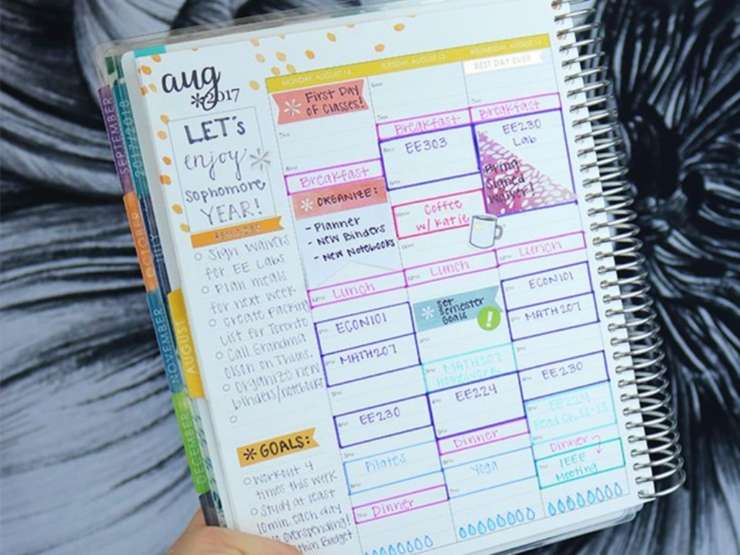 aug
2017
LET'S
enjoy
sophomore
YEAR!
Sign Waivers
for EE Labs
Plan meals
for next week
Create Packing
List for Toronto
Call Grandma
Olsen on Thurs.
Organize new
binders/notebooks
GOALS:
Workout 4
times this week
Study at least
10min each day
overspending!
Budget
SEPTEMBER
OCTOBER
NOVEMBER
AUGUST
DECEMBER
MONDAY, AUGUST 14
First Day
of Classes!
Breakfast
ORGANIZE:
- Planner
- New Binders
- New Notebooks
Lunch
ECON101
MATH207
EE230
Pilates
Dinner
TUESDAY, AUGUST 15
Breakfast
EE303
Coffee
w/ Katie
Lunch
Set
Semester
Goals
MATH207
Homework
EE224
Dinner
Yoga
WEDNESDAY, AUGUST 16
BEST DAY EVER
Breakfast
EE230
Lab
Bring
Signed
Waiver!
Lunch
ECON101
MATH207
EE230
EE224
Read Ch.
Dinner
IEEE
Meeting